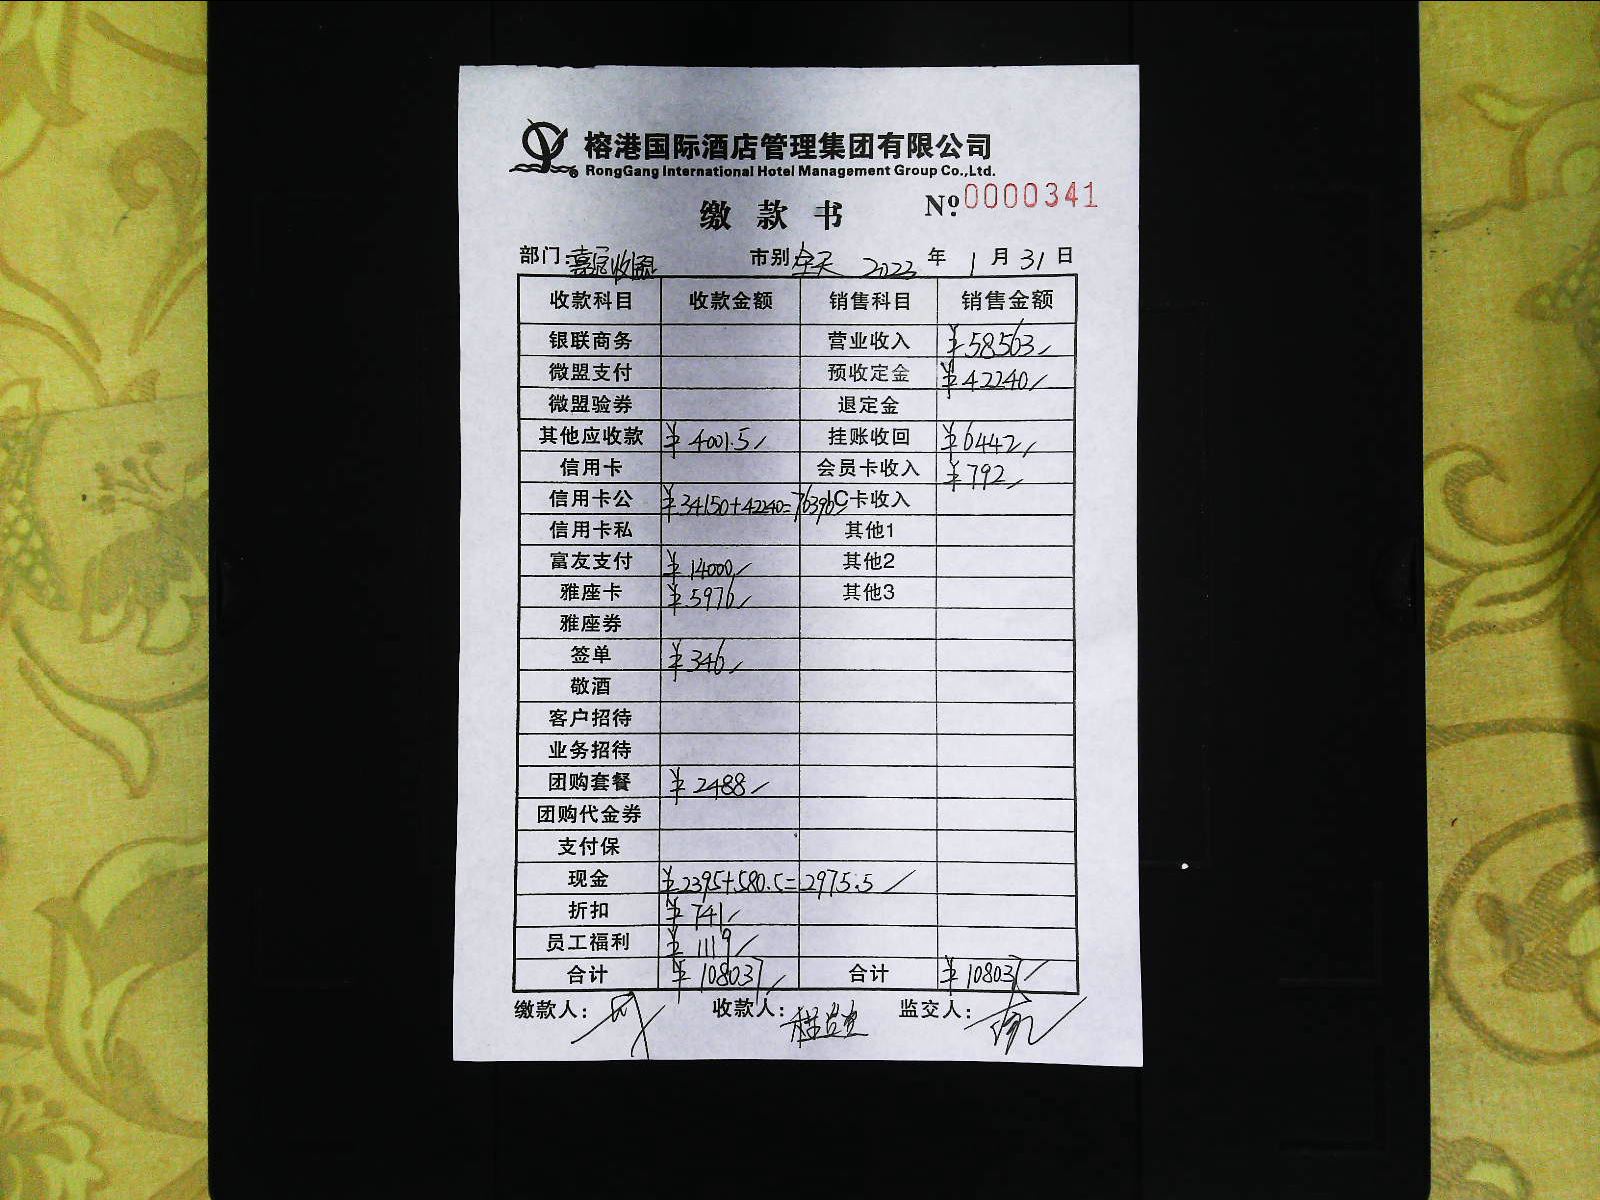 榕港国际酒店管理集团有限公司
RongGang International Hotel Management Group Co.,Ltd.
缴款书 Nº 0000341
部门: 市别 全天 2023 年 1 月 31 日
收款科目 收款金额 销售科目 销售金额
银联商务 营业收入 ¥58563
微盟支付 预收定金 ¥42240
微盟验券 退定金
其他应收款 ¥4001.5 挂账收回 ¥6442
信用卡 会员卡收入 ¥792
信用卡公 ¥34150+42240=76390 IC卡收入
信用卡私 其他1
富友支付 ¥14000 其他2
雅座卡 ¥5976 其他3
雅座券
签单 ¥346
敬酒
客户招待
业务招待
团购套餐 ¥2488
团购代金券
支付保
现金 ¥2395+580.5=2975.5
折扣 ¥741
员工福利 ¥1119
合计 ¥108037 合计 ¥108037
缴款人: 收款人: 监交人: